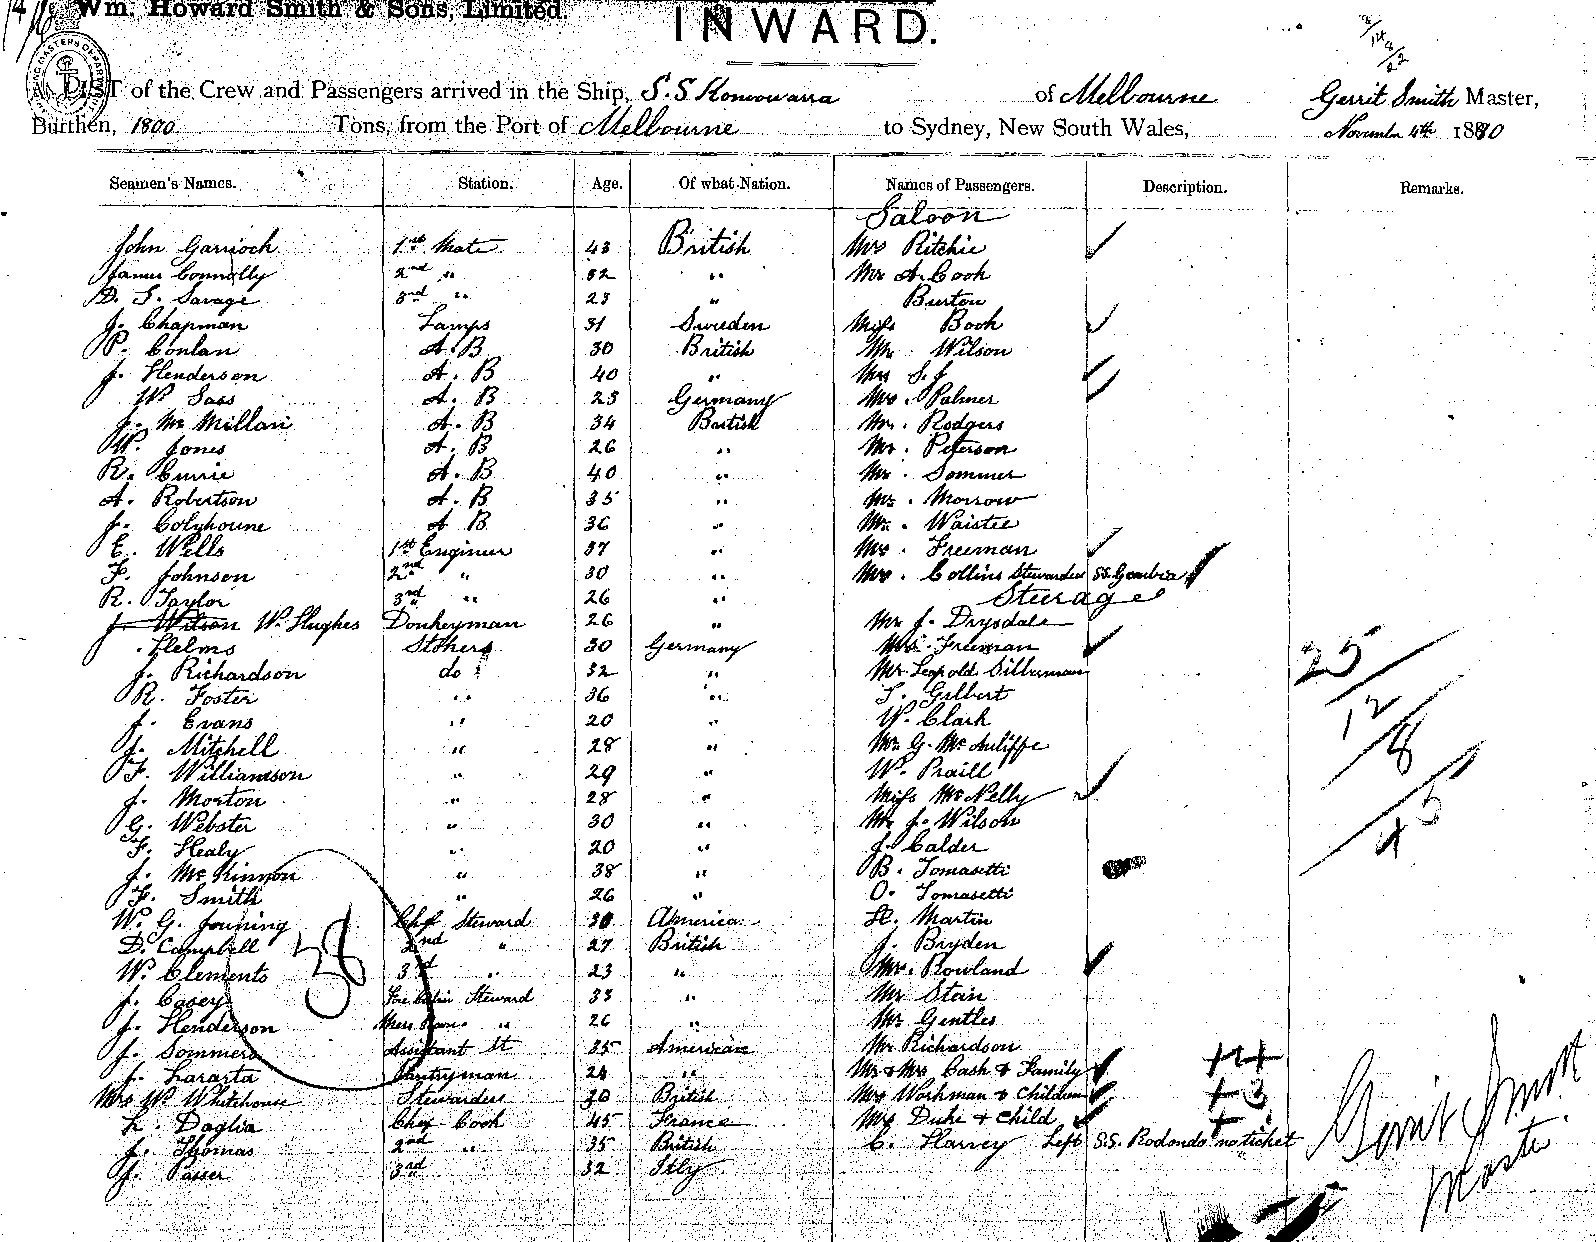 Wm. Howard Smith & Sons, Limited.
INWARD.
LIST of the Crew and Passengers arrived in the Ship, S.S. Konoowarra of Melbourne Gerrit Smith Master,
Burthen, 1800 Tons, from the Port of Melbourne to Sydney, New South Wales, November 4th 1890
Seamen's Names. Station. Age. Of what Nation. Names of Passengers. Description. Remarks.
Saloon
John Garrioch 1st Mate 43 British Mrs Ritchie
James Connolly 2nd " 32 " Mr A. Cook
D. S. Savage 3rd " 23 " Burton
J. Chapman Lamps 31 Sweden Miss Book
P. Conlan A.B 30 British Mr. Wilson
J. Henderson A.B 40 " Mrs S.J
W. Sass A.B 23 Germany Mrs. Palmer
J. McMillan A.B 34 British Mr. Rodgers
W. Jones A.B 26 " Mr. Peterson
R. Currie A.B 40 " Mr. Sommer
A. Robertson A.B 35 " Mr. Morrow
J. Colyhoune A B 36 " Mr. Waistee
E. Wells 1st Engineer 37 " Mrs. Freeman
F. Johnson 2nd " 30 " Mrs. Collins Stewardess SS. Gambia
R. Taylor 3rd " 26 " Steerage
J. Wilson W. Hughes Donkeyman 26 " Mr J. Drysdale
Helms Stokers 30 Germany Mrs. Freeman
J. Richardson do 32 " Mr Leopold Silberman
R. Foster " 36 " T. Gilbert
J. Evans " 20 " W. Clark
J. Mitchell " 28 " Mr G. McAuliffe
F. Williamson " 29 " W. Praill
J. Morton " 28 " Miss McNelly
G. Webster " 30 " Mr J. Wilson
F. Healy " 20 " J. Calder
J. McKinnon " 38 " B. Tomasetti
F. Smith " 26 " O. Tomasetti
W. G. Jouning Chf Steward 30 America H. Martin
D. Campbell 2nd " 27 British J. Bryden
W. Clements 3rd " 23 " Mrs. Rowland
J. Casey Fore Cabin Steward 33 " Mr Stein
J. Henderson Mess Room " 26 " Mr Gentles
J. Sommers Assistant St 35 American Mr Richardson
J. Lararta Pantryman 24 " Mr & Mrs Cash & Family + 4
Mrs W. Whitehouse Stewardess 30 British Mrs Workman & Children + 3
L. Daglia Chef Cook 45 France Mrs Duke & Child + 1
J. Thomas 2nd " 35 British C. Harvey Left SS. Rodondo no ticket
J. Passer 3rd 32 Itly
38
25
12
8
45
Gerrit Smith
Master